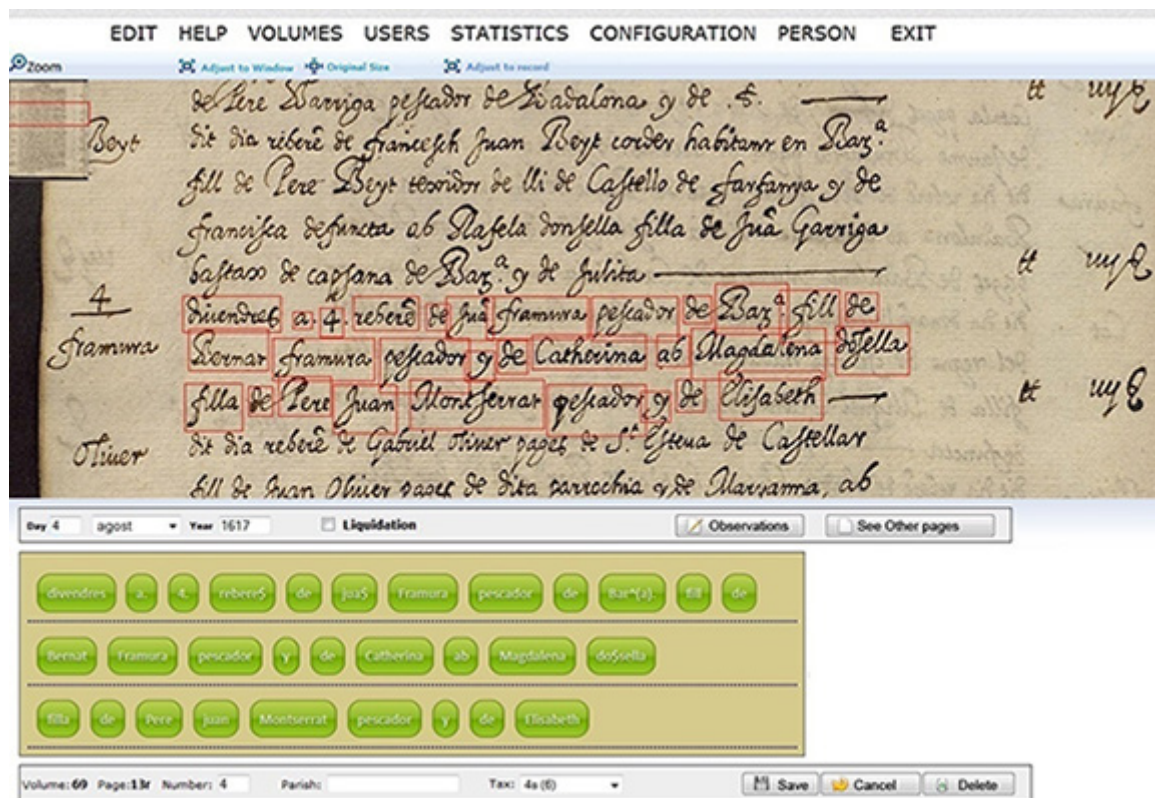 EDIT HELP VOLUMES USERS STATISTICS CONFIGURATION PERSON EXIT
Zoom Adjust to Window Original Size Adjust to record
de Pere Barriga pescador de Badalona y de .S. tt
Beyt dit dia reberē de francesch Juan Beyt corder habitant en Barᵃ.
fill de Pere Beyt texidor de lli de Castello de farfanya y de
francisca defuncta ab Rafela donsella filla de Juā Garriga
bastax de capsana de Barᵃ. y de Julita tt
4 divendres a. 4. reberē de Juā framura pescador de Barᵃ. fill de
framura Bernat framura pescador y de Catherina ab Magdalena dōsella
filla de Pere Juan Montserrat pescador y de Elisabeth tt
Oliver dit dia reberē de Gabriel Oliver pages de Sᵗ Esteva de Castellar
fill de Juan Oliver pages de dita parrochia y de Marianna, ab
Day 4 agost Year 1617 Liquidation Observations See Other pages
divendres a. 4. rebere$ de jua$ Framura pescador de Bar^(a). fill de
Bernat Framura pescador y de Catherina ab Magdalena do$sella
filla de Pere juan Montserrat pescador y de Elisabeth
Volume: 69 Page:13r Number: 4 Parish: Tax: 4s (6) Save Cancel Delete